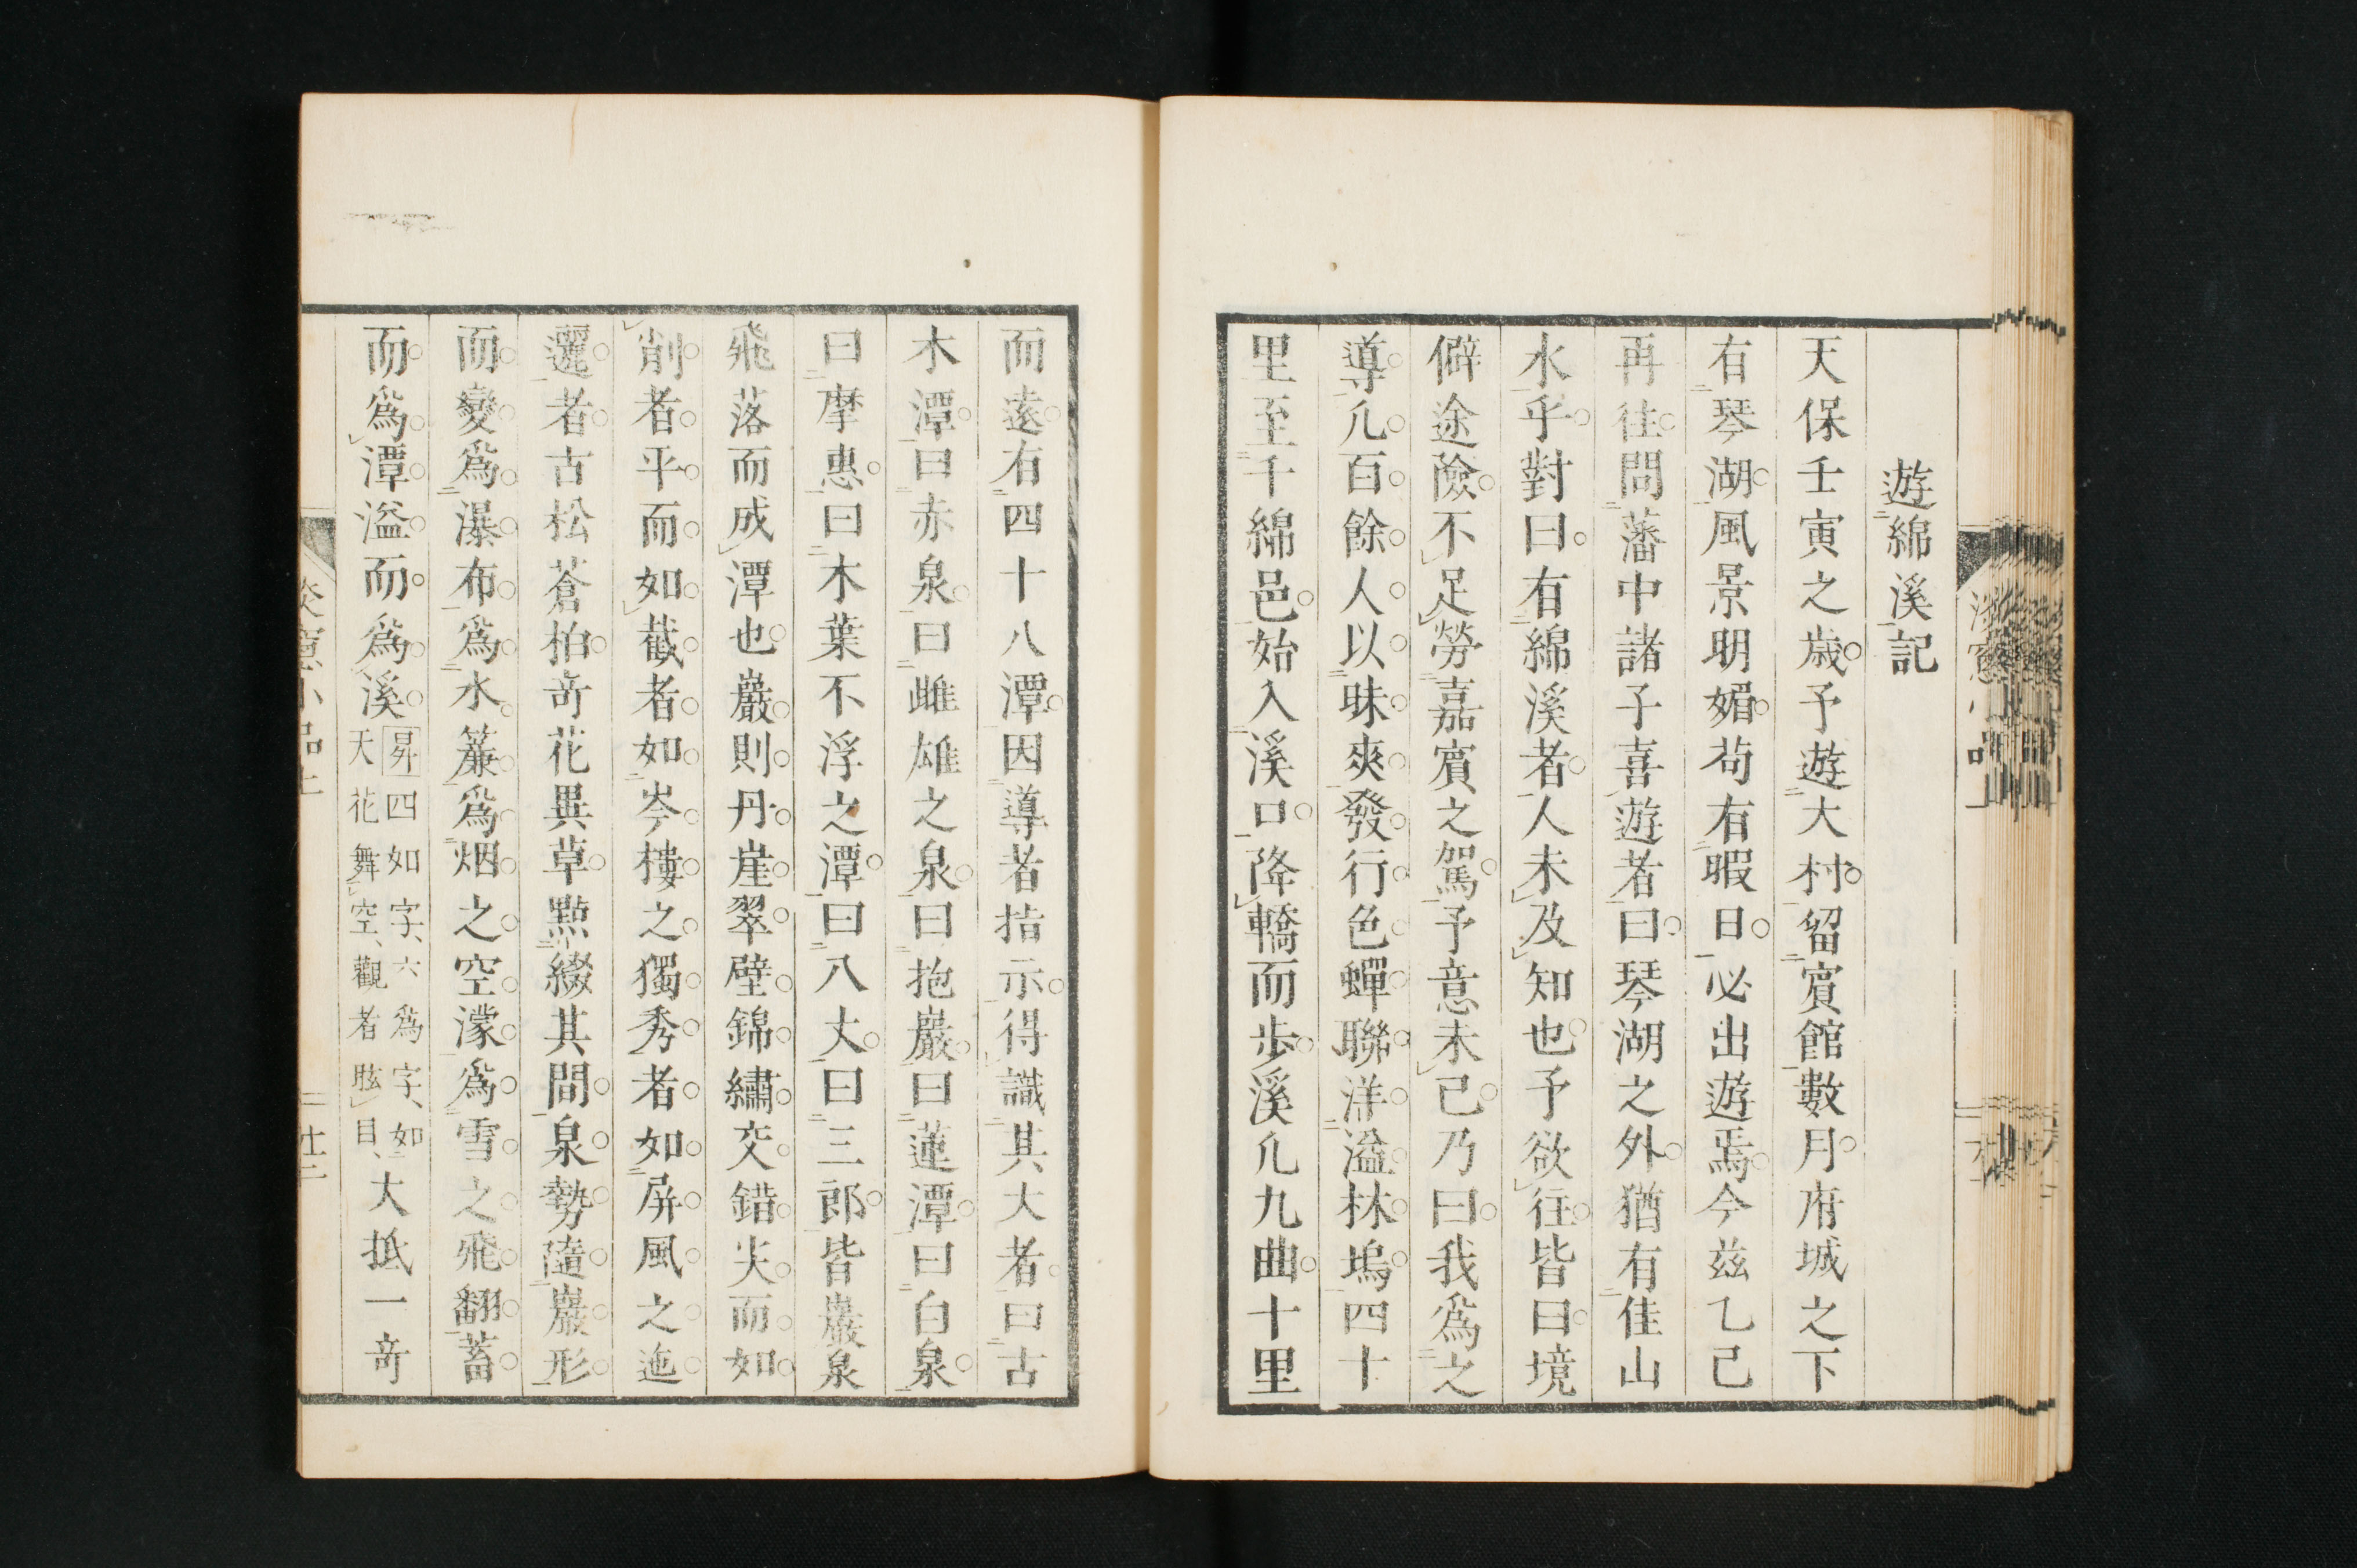 遊綿溪記
天保壬寅之歳予遊大村留賓館數月府城之下
有琴湖風景明媚苟有暇日必出遊焉今兹乙己
再往問藩中諸子喜遊者曰琴湖之外猶有佳山
水乎對曰有綿溪者人未及知也予欲往皆曰境
僻途險不足勞嘉賓之駕予意未已乃曰我爲之
導凢百餘人以昧爽發行色蟬聯洋溢林塢四十
里至千綿邑始入溪口降轎而歩溪凢九曲十里
而遠有四十八潭因導者指示得識其大者曰古
木潭曰赤泉曰雌雄之泉曰抱巖曰蓮潭曰白泉
曰摩惠曰木葉不浮之潭曰八丈曰三郎皆巖泉
飛落而成潭也巖則丹崖翠壁錦繡交錯尖而如
削者平而如截者如岑樓之獨秀者如屏風之迤
邐者古松蒼柏竒花異草點綴其間泉勢隨巖形
而變爲瀑布爲水簾爲烟之空濛爲雪之飛翻蓄
而爲潭溢而爲溪昇四如字、六爲字、如天花舞空、觀者眩目、大抵一竒
小品上